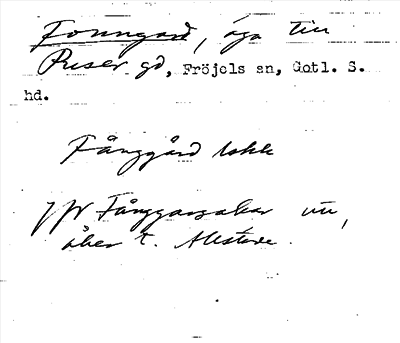 Fonngard, äga till
Puser gd, Fröjels sn, Gotl. S.
hd.
Fånggård Uskk
Jfr Fånggarsakar un,
åker t. Allstäde.